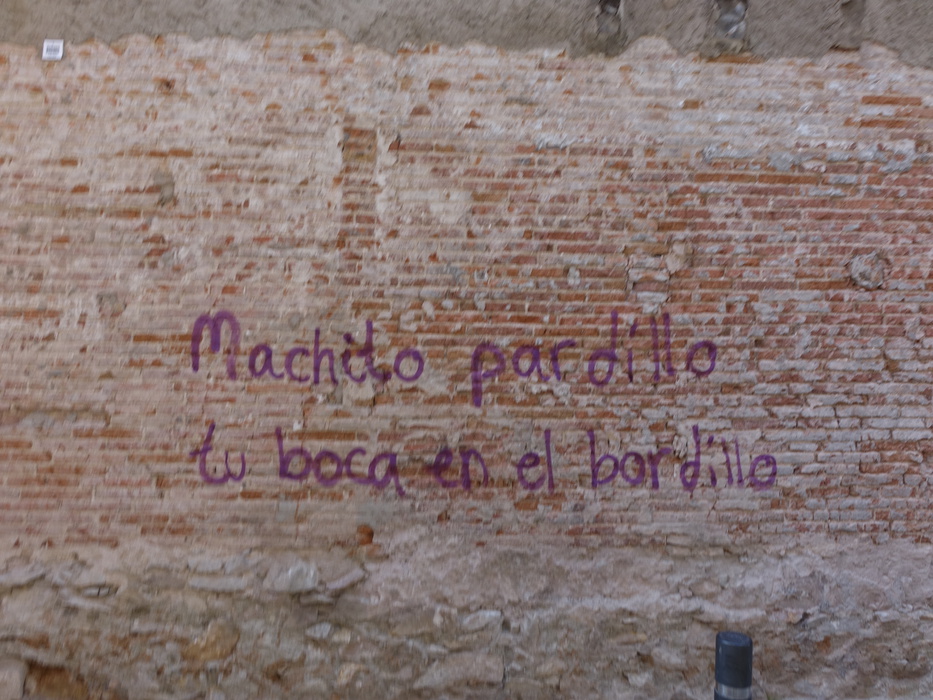 Machito pardillo
tu boca en el bordillo